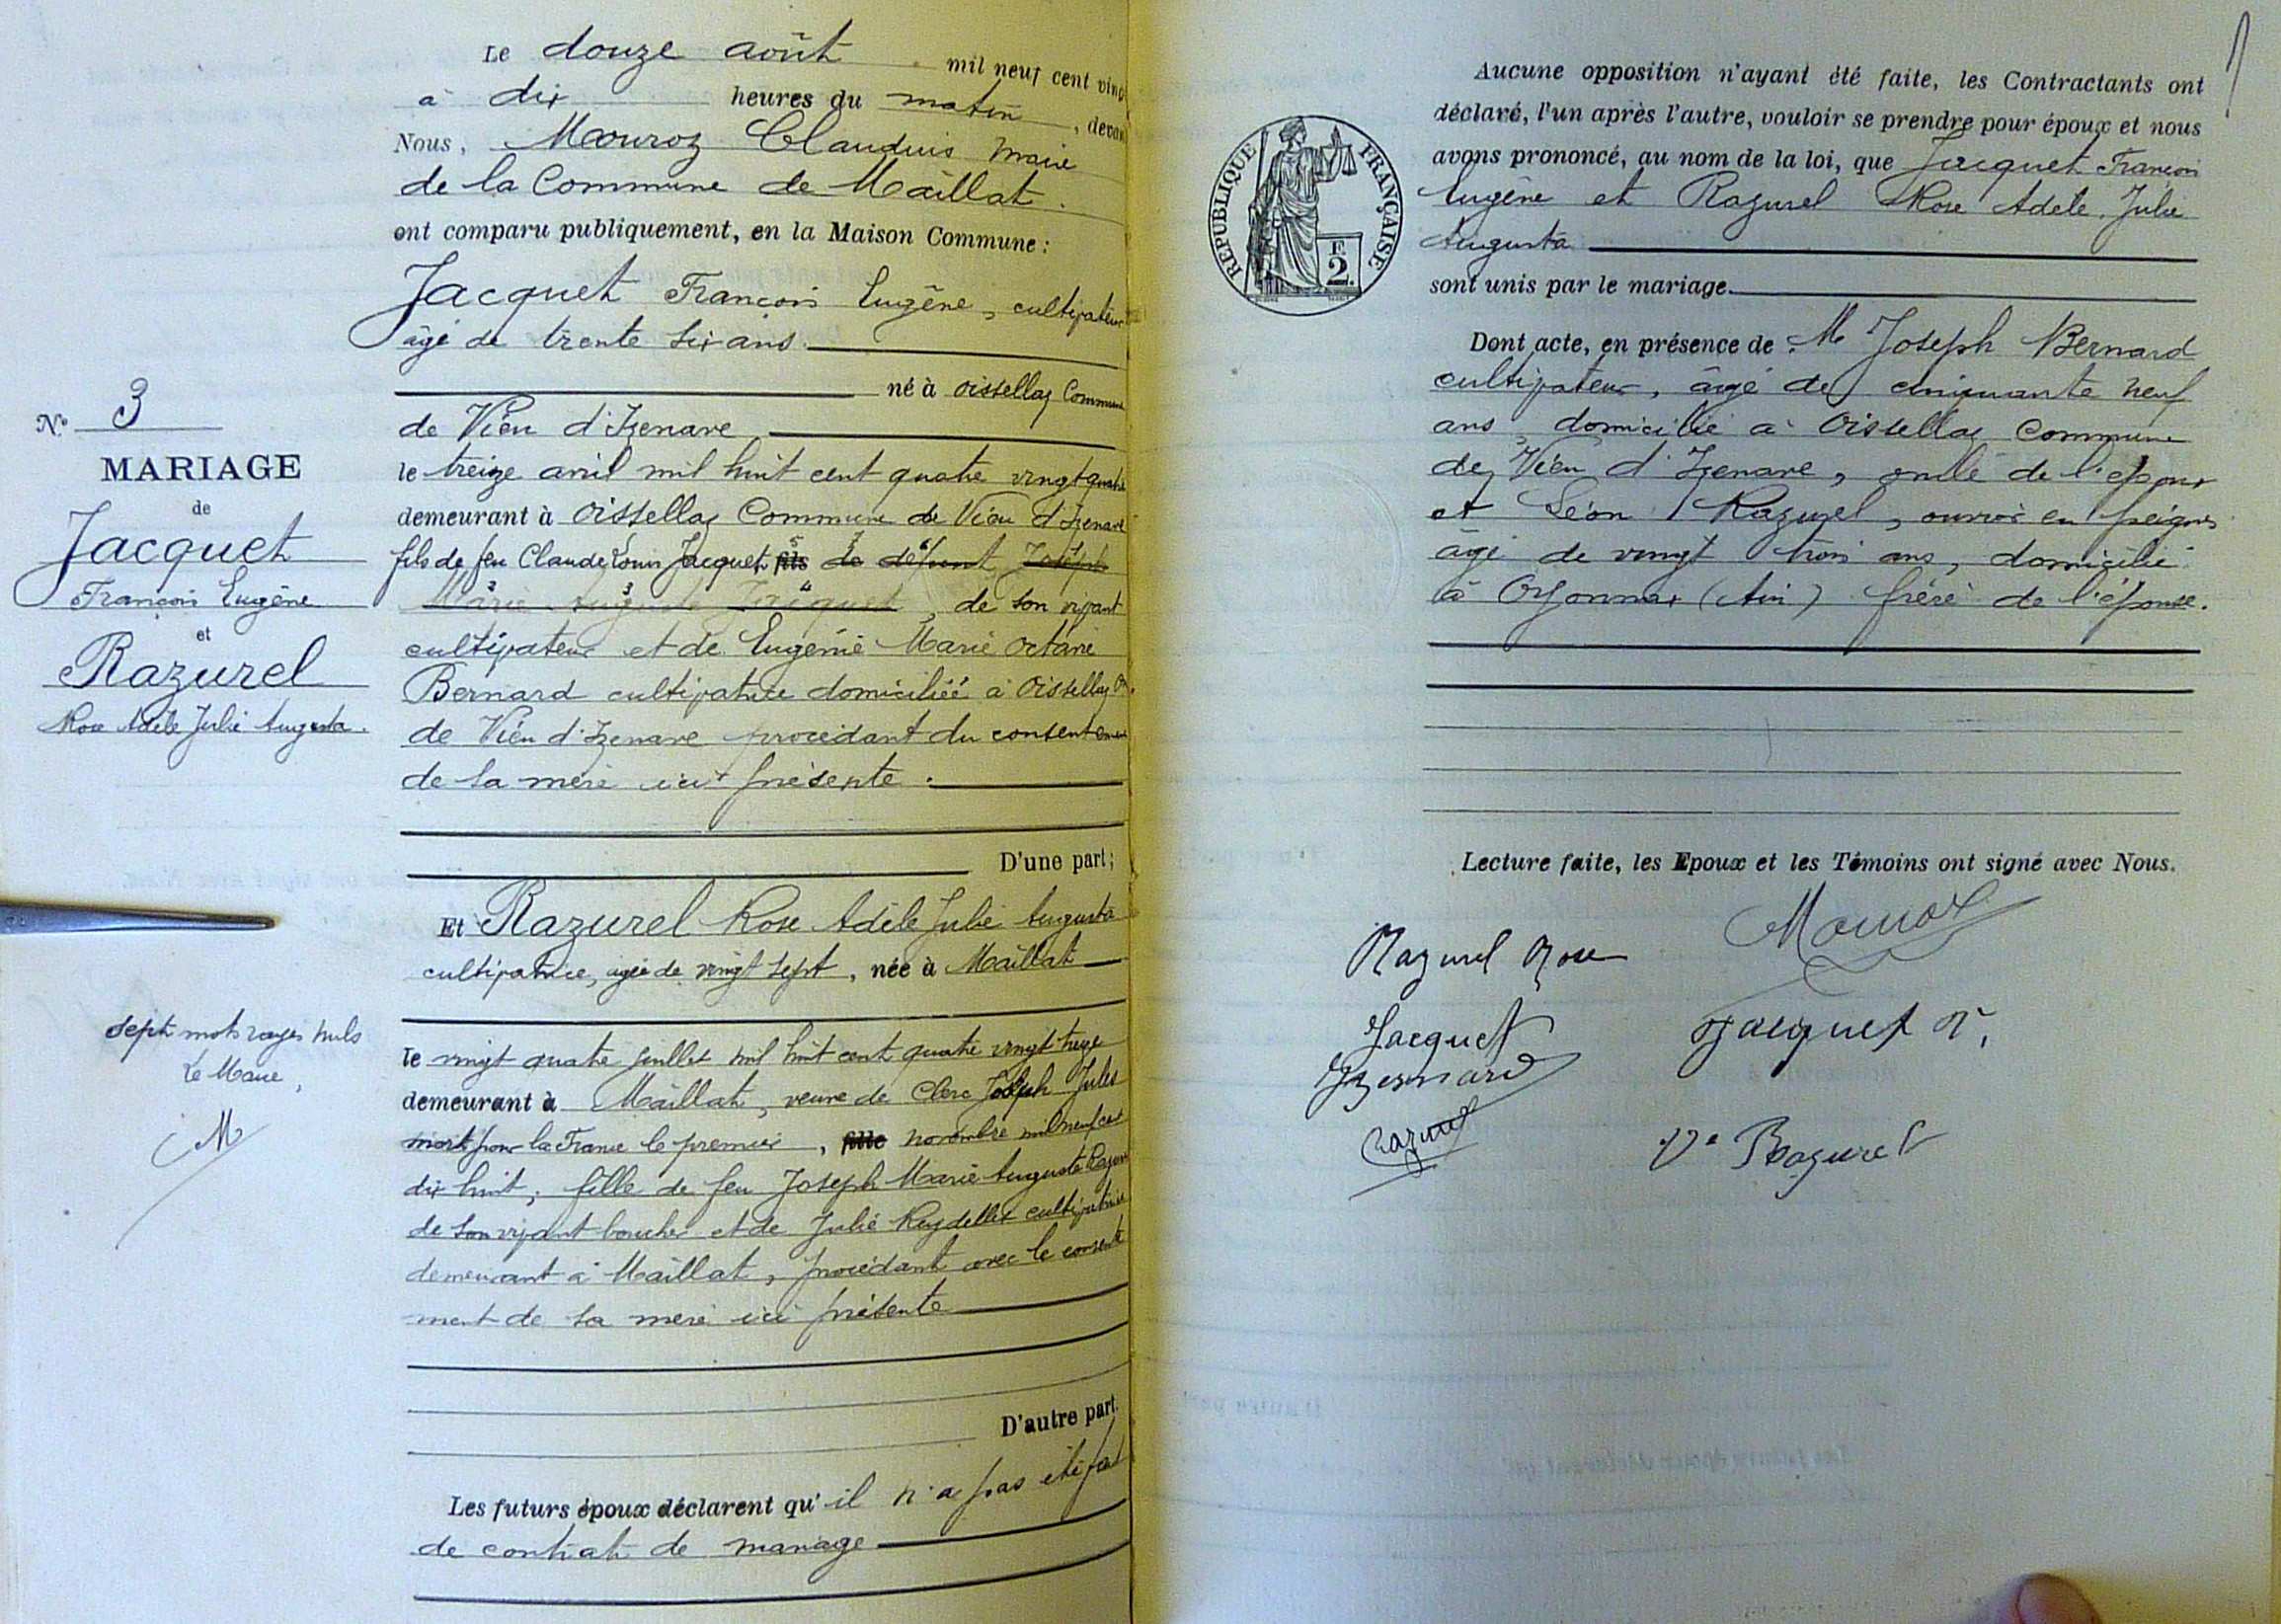 Le douze août mil neuf cent ving
à dix heures du matin, devan
Nous, Mouroz Claudius maire
de la Commune de Maillat.
ont comparu publiquement, en la Maison Commune :
Jacquet François Eugène, cultivateur
âgé de trente six ans.
né à Oissellaz Commune
de Vieu d'Izenave
le treize avril mil huit cent quatre vingt quatre
demeurant à Oissellaz Commune de Vieu d'Izenave
fils de feu Claude Louis Jacquet fils de défunt Joseph
Marie Auguste Jacquet, de son vivant
cultivateur et de Eugénie Marie Octavie
Bernard cultivatrice domiciliée à Oissellaz Cne
de Vieu d'Izenave procédant du consentement
de sa mère ici présente.
D'une part;
N° 3
MARIAGE
de
Jacquet
François Eugène
et
Razurel
Rose Adèle Julie Augusta.
Et Razurel Rose Adèle Julie Augusta
cultivatrice, agée de vingt sept, née à Maillat
le vingt quatre juillet mil huit cent quatre vingt treize
demeurant à Maillat, veuve de Clerc Joseph Jules
mort pour la France le premier, fille novembre mil neuf cent
dix huit, fille de feu Joseph Marie Auguste Razurel
de son vivant boucher et de Julie Reydellet cultivatrice
demeurant à Maillat, procédant avec le consente
ment de sa mère ici présente
D'autre part.
sept mots rayés nuls
Le Maire,
M
Les futurs époux déclarent qu'il n'a pas été fait
de contrat de mariage
Aucune opposition n'ayant été faite, les Contractants ont
déclaré, l'un après l'autre, vouloir se prendre pour époux et nous
avons prononcé, au nom de la loi, que Jacquet François
Eugène et Razurel Rose Adèle Julie
Augusta
sont unis par le mariage.
RÉPUBLIQUE FRANÇAISE
F.
2.
Dont acte, en présence de M Joseph Bernard
cultivateur, âgé de cinquante neuf
ans, domicilié à Oissellaz Commune
de Vieu d'Izenave, oncle de l'époux
et Léon Razurel, ouvrier en peignes
âgé de vingt trois ans, domicilié
à Oyonnax (Ain) frère de l'épouse.
Lecture faite, les Epoux et les Témoins ont signé avec Nous.
Razurel Rose Mouroz
Jacquet Jacquet
Bernard
Razurel Ve Razurel